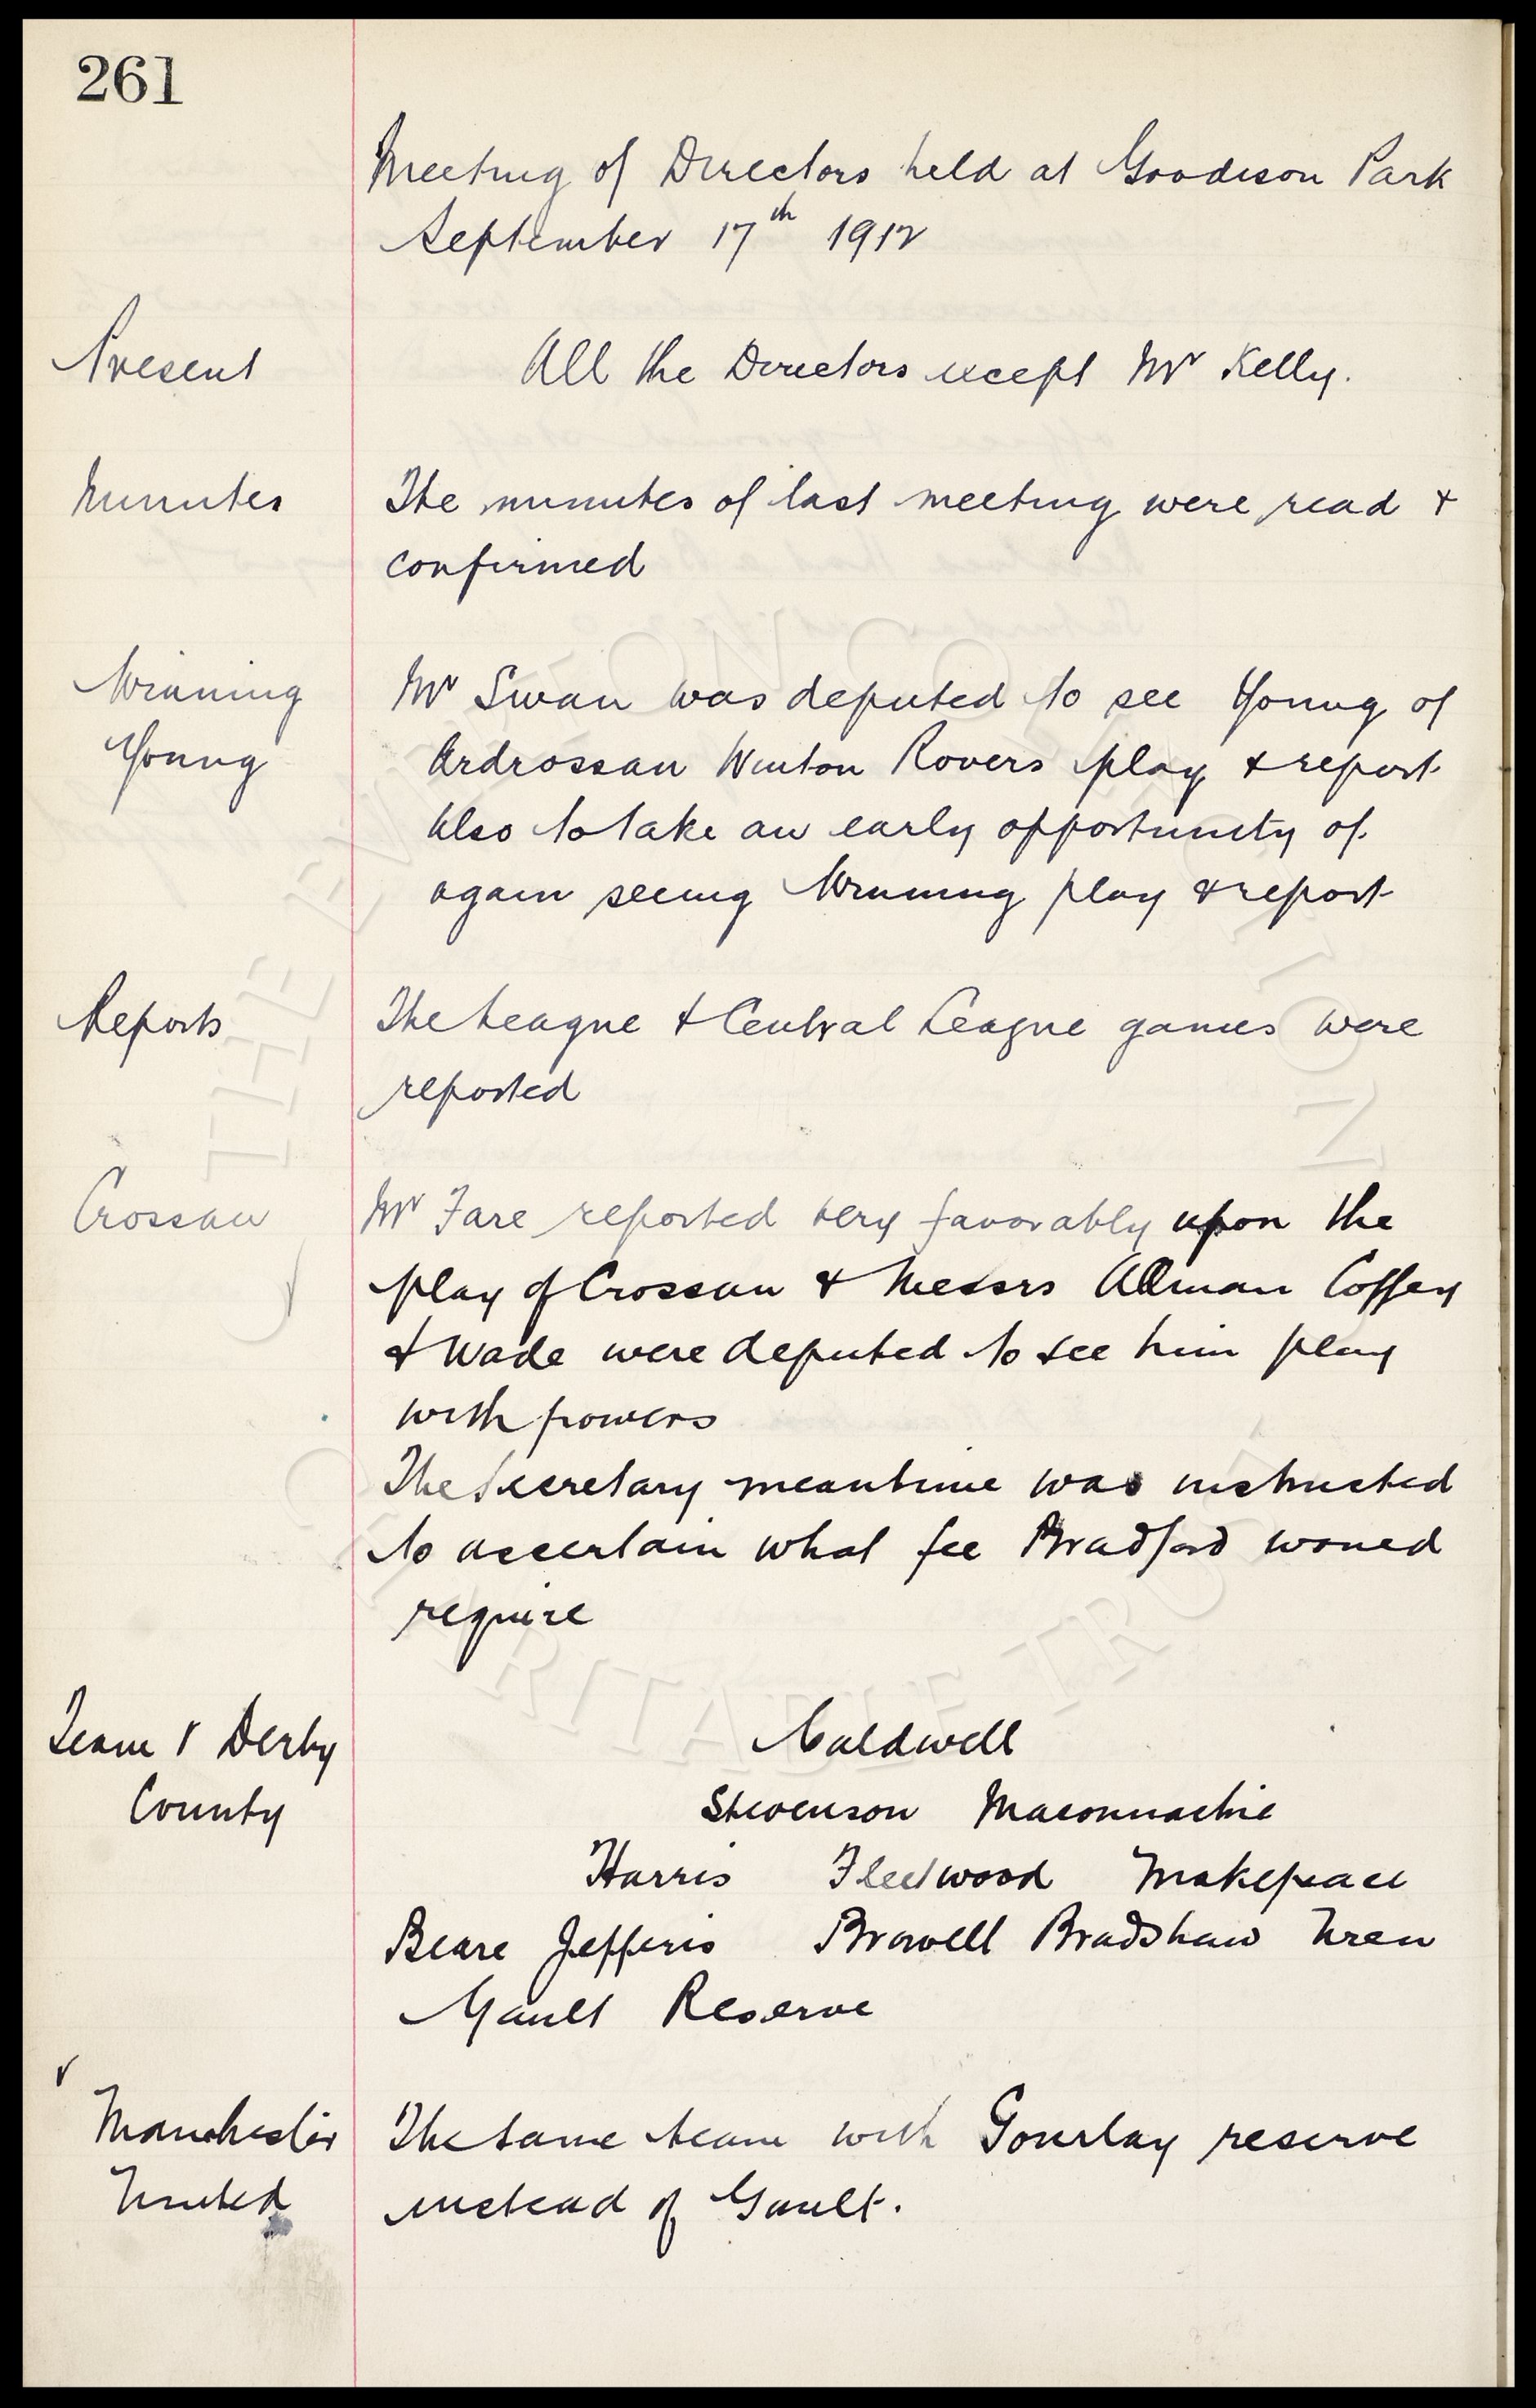 261
Meeting of Directors held at Goodison Park
September 17th 1912
Present
All the Directors except Mr Kelly.
Minutes
The minutes of last meeting were read &
confirmed
Winning
Young
Mr Swan was deputed to see Young of
Ardrossan Winton Rovers play & report
Also to take an early opportunity of
again seeing Winning play & report
Reports
The League & Central League games were
reported
Crossan
Mr Fare reported very favorably upon the
play of Crossan & Messrs Allman Coffey
& Wade were deputed to see him play
with powers
The Secretary meantime was instructed
to ascertain what fee Bradford would
require
Team v Derby
County
Caldwell
Stevenson Maconnachie
Harris Fleetwood Makepeace
Beare Jefferis Browell Bradshaw Uren
Gault Reserve
v
Manchester
United
The same team with Gourlay reserve
instead of Gault.